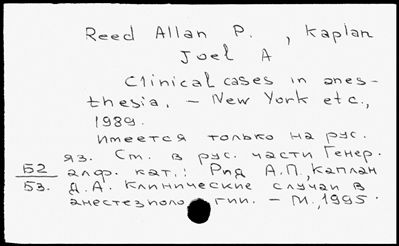 Reed Allan P., Kaplan
Joel A
Clinical cases in anes-
thesia. - New York etc.,
1989.
Имеется только на рус.
яз. См. в рус. части Генер.
Б2 алф. кат.: Рид А.П., Каплан
53. Д.А. Клинические случаи в
анестезиологии. - М., 1995.